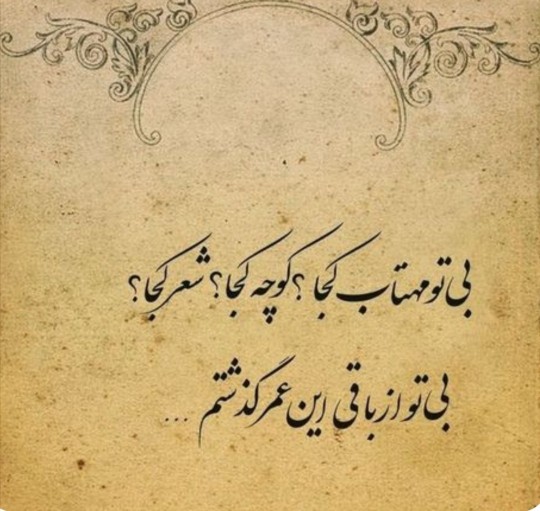 بی تو مهتاب کجا ؟ کوچه کجا؟ شعر کجا؟
بی تو از باقی این عمر گذشتم ...